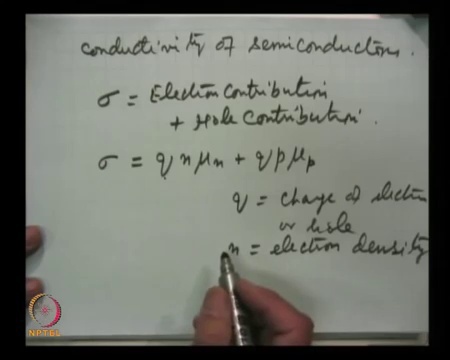 conductivity of semiconductors.
σ = Electron Contribution
+ Hole Contribution.
σ = q n μn + q p μp
q = charge of electron
or hole
n = electron density
NPTEL